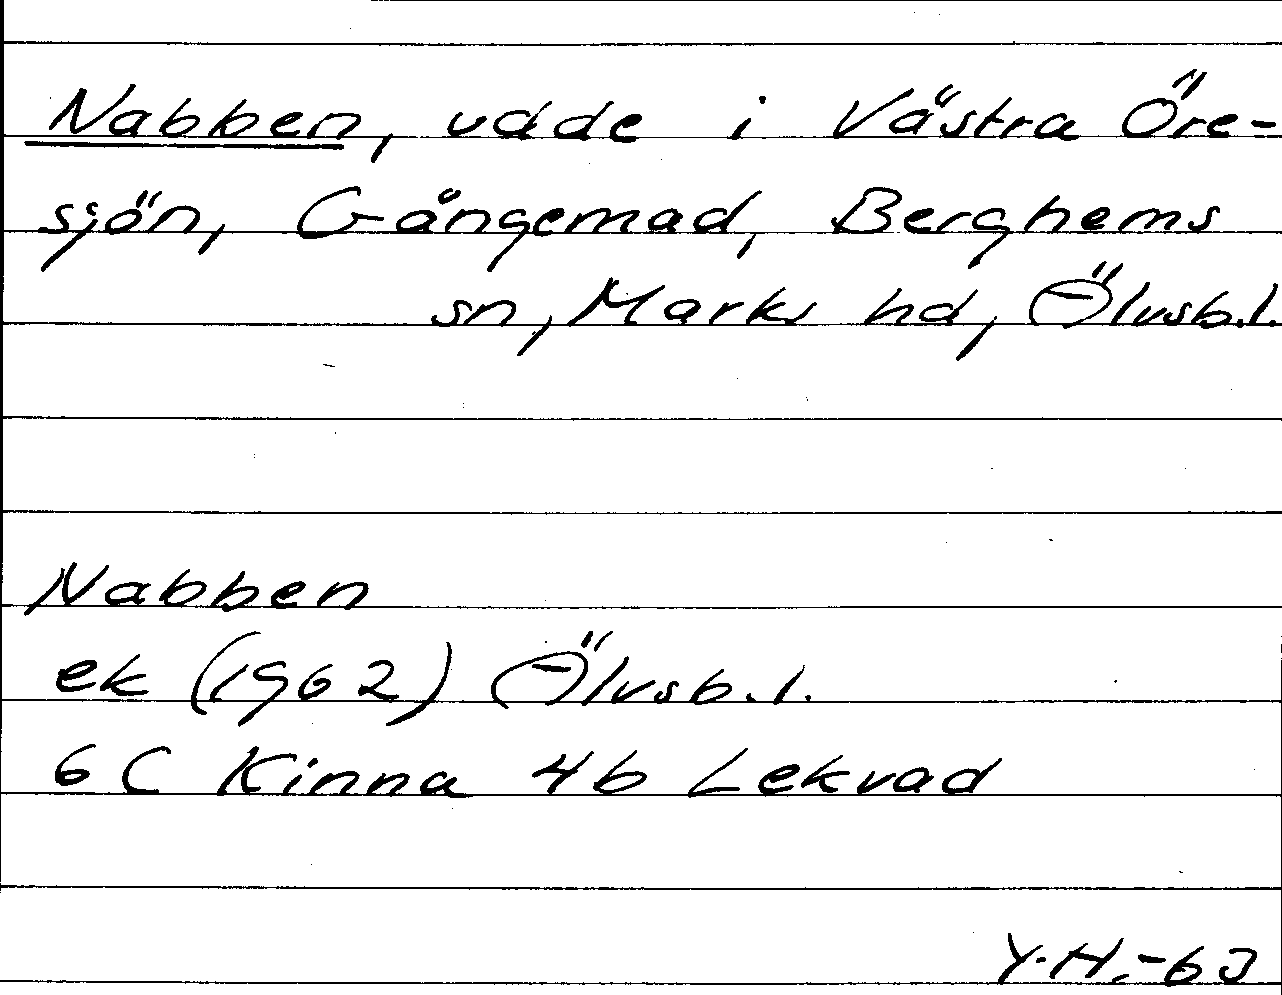 Nabben, udde i Västra Öre-
sjön, Gångemad, Berghems
sn, Marks hd, Älvsb.l.
Nabben
ek (1962) Älvsb.l.
6 C Kinna 4b Lekvad
Y.H.-63